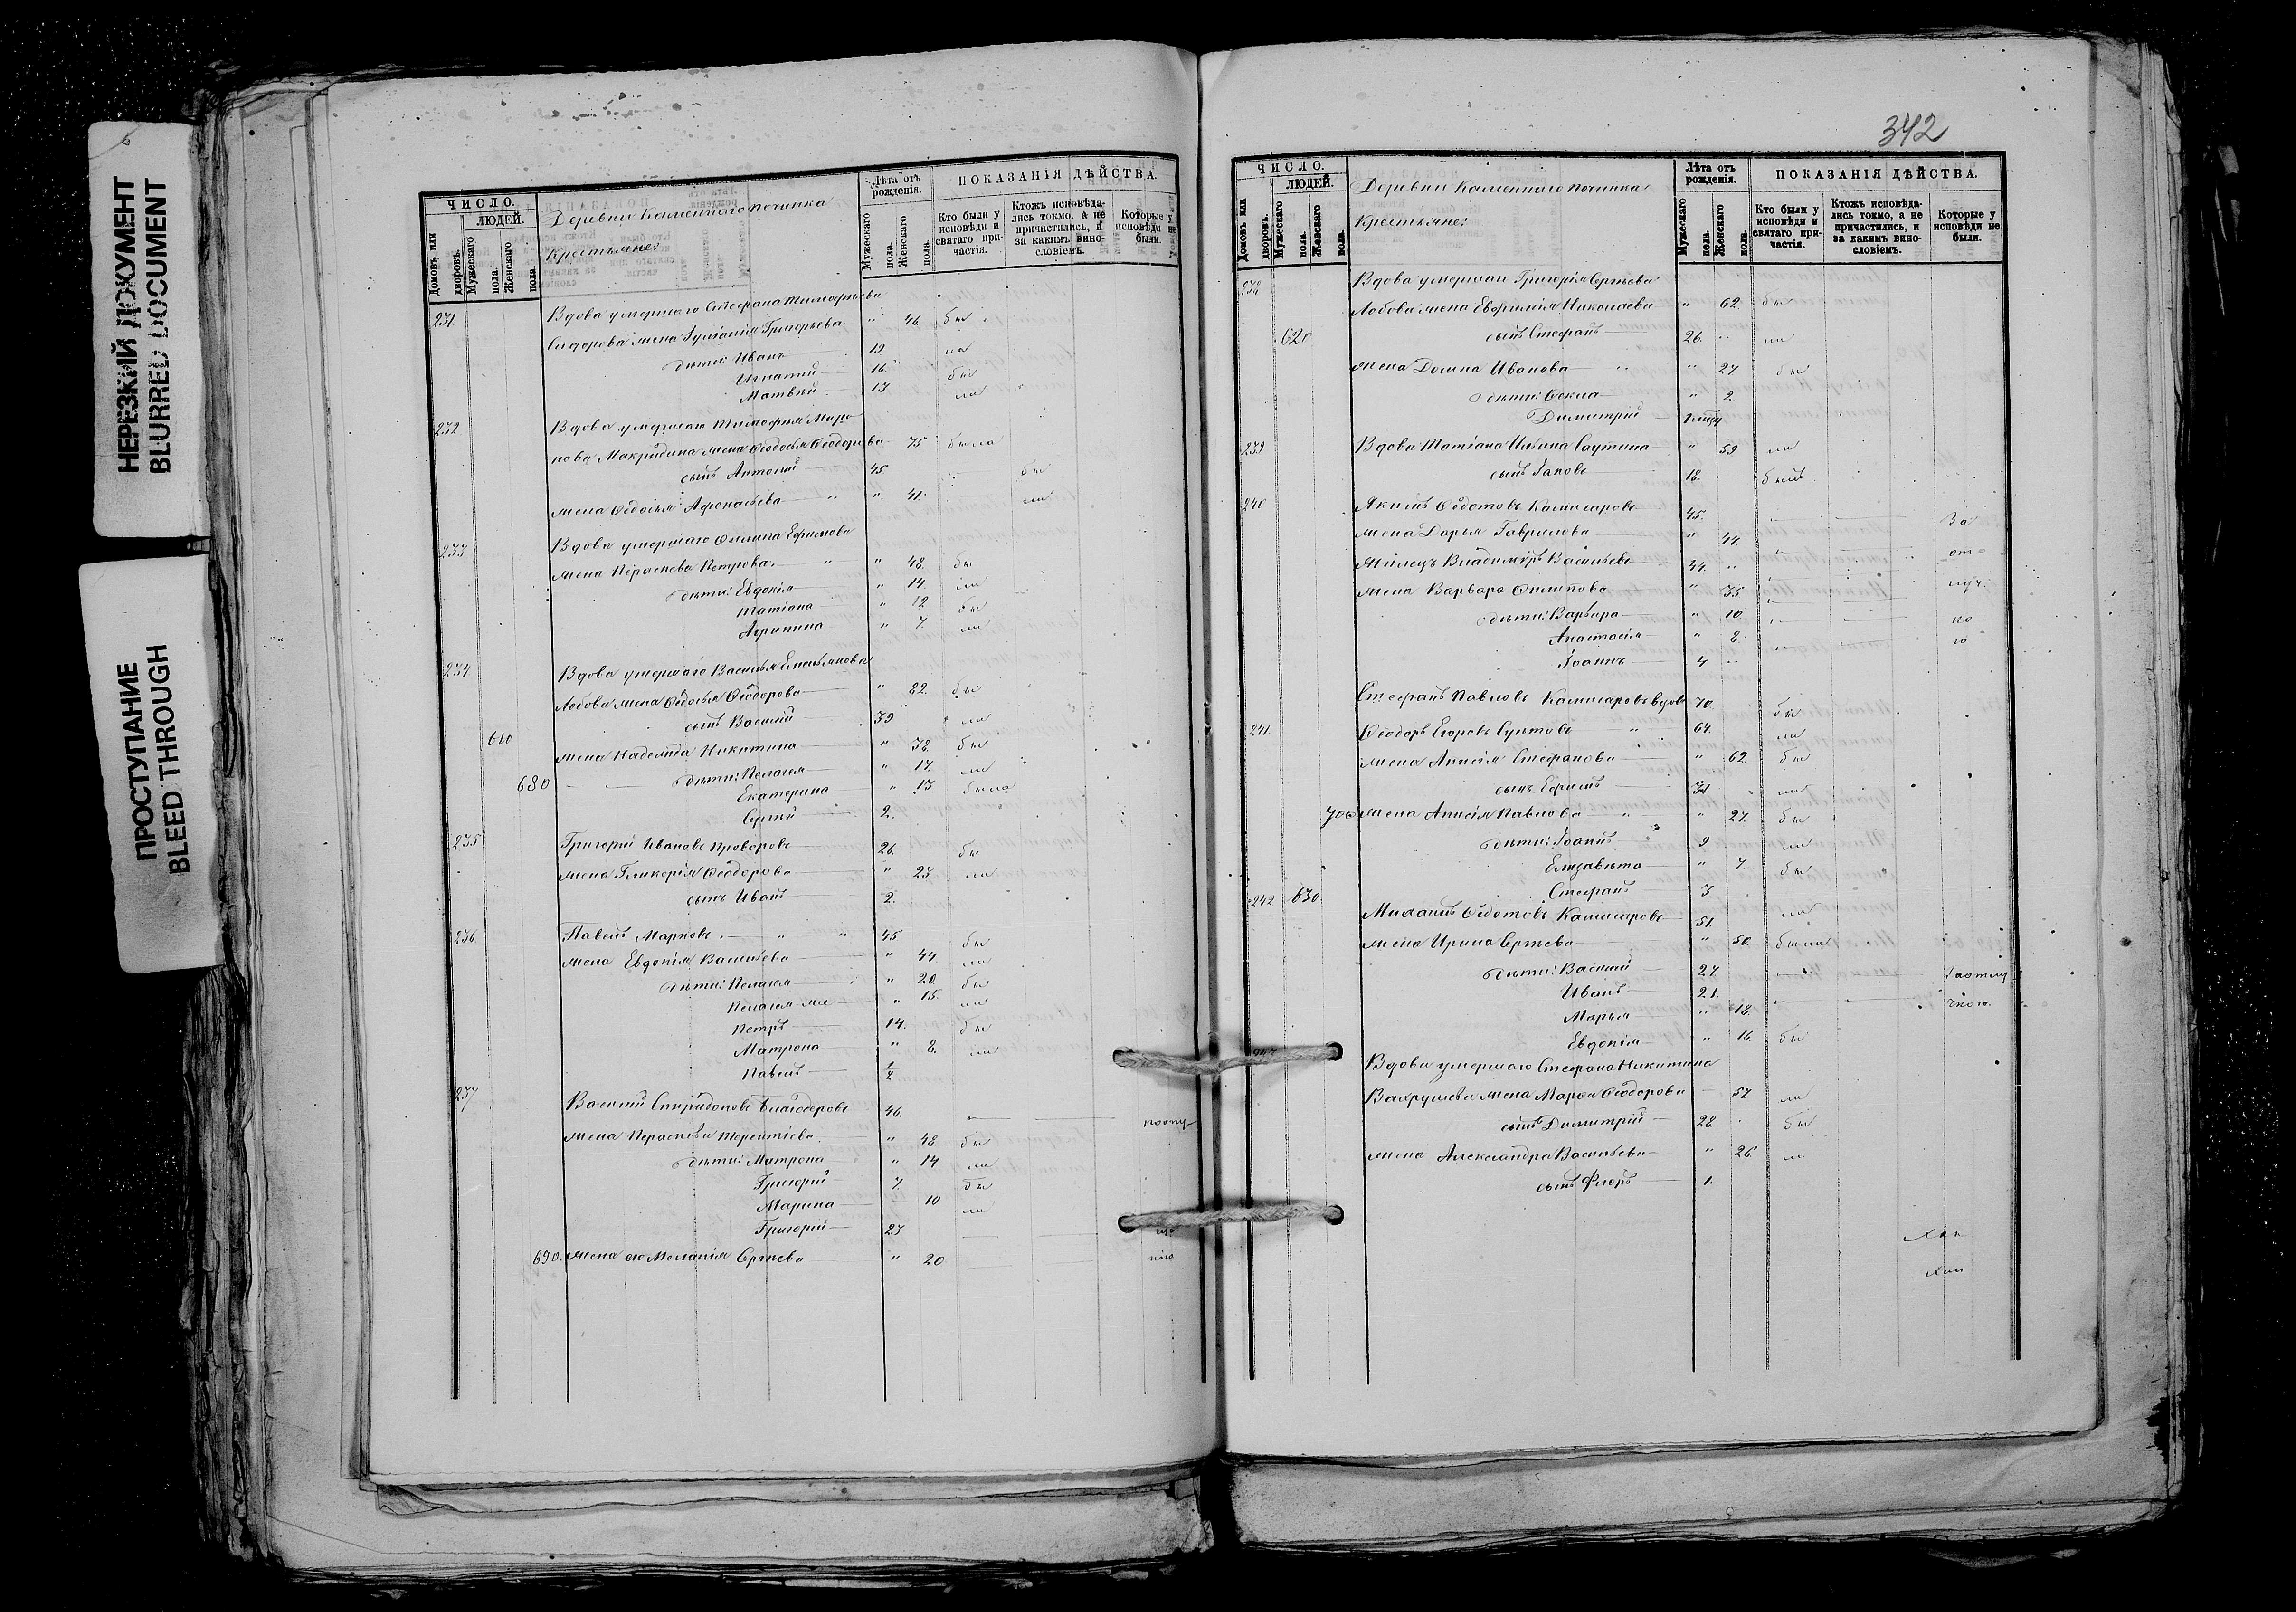 НЕРЕЗКИЙ ДОКУМЕНТ
BLURRED DOCUMENT
ПРОСТУПАНИЕ
BLEED THROUGH
ЧИСЛО.
ЛЮДЕЙ.
Домовъ или дворовъ.
Мужескаго пола.
Женскаго пола.
Деревни Каменнаго починка
Крестьяне:
Лѣта отъ рожденія.
Мужескаго пола.
Женскаго пола.
ПОКАЗАНІЯ ДѢЙСТВА.
Кто были у исповѣди и святаго причастія.
Ктожъ исповѣдались токмо, а не причастились, и за какимъ винословіемъ.
Которые у исповѣди не были.
231. Вдова умершаго Стефана Тимофѣева
Сидорова жена Іуліанія Григорьева " 46. бы
дѣти: Иванъ 19 ла
Игнатій 16. бы
Матвѣй 13 ли
232 Вдова умершаго Тимофея Миро
нова Макридина жена Ѳеодосья Ѳеодорова 75 была
сынъ Антоній 45 бы
жена Ѳедосья Афонасьева " 41. ли
233 Вдова умершаго Филипа Ефимова
жена Параскева Петрова. " 48. бы
дѣти: Евдокія " 14. ли
Татіана " 12 бы
Агрипина " 7. ли
234 Вдова умершаго Василья Емельянова
Лобова жена Ѳедосья Ѳеодорова " 82. бы
сынъ Василій 39 ли
610
жена Надежда Никитина " 38. бы
680 дѣти: Пелагея " 17. ли
Екатерина " 13 была
Сергѣй 2.
235 Григорій Ивановъ Прозоровъ 26. бы
жена Гликерія Ѳеодорова " 23 ли
сынъ Иванъ 2.
236 Павелъ Марковъ " " 45 бы
жена Евдокія Васильева " 44. ли
дѣти: Пелагея " 20. бы
Пелагея же " 15. ли
Петръ 14. бы
Матрона " 8. ли
Павелъ 1/2
237 Василій Спиридоновъ 46.
жена Параскева Терентіева. " 48. бы
дѣти: Матрона " 14 ли
Григорій 7. бы
Марина 10 ли
Григорій 23
690. жена его Меланія Сергѣева " 20
342
ЧИСЛО.
ЛЮДЕЙ.
Домовъ или дворовъ.
Мужескаго пола.
Женскаго пола.
Деревни Каменнаго починка
Крестьяне:
Лѣта отъ рожденія.
Мужескаго пола.
Женскаго пола.
ПОКАЗАНІЯ ДѢЙСТВА.
Кто были у исповѣди и святаго причастія.
Ктожъ исповѣдались токмо, а не причастились, и за какимъ винословіемъ.
Которые у исповѣди не были.
238 Вдова умершаго Григорія Сергѣева
Лобова жена Евфимія Николаева " 62. бы
620 сынъ Стефанъ 26. " ли
жена Домна Иванова " 27 бы
дѣти: Ѳекла " 2.
Димитрій
239 Вдова Татіана Ильина " 59 ли
сынъ Іаковъ 18. былъ
240 Якимъ Ѳедотовъ Камисаровъ 45. За
жена Дарья Гаврилова " 44. от=
Владиміръ Васильевъ 44. " луч.
жена Варвара Филипова " 35. ко
дѣти: Варвара " 10. ю
Анастасія " 8.
Іоаннъ 4 "
Стефанъ Павловъ Камисаровъ вдовъ 70. бы
241. Ѳеодоръ Егоровъ " 64. ли
жена Анисія Стефанова " 62. бы
сынъ Ефимъ 31 ли
700 жена Анисія Павлова " " 27. бы
дѣти: Іоаннъ 9 ли
Елизавета " 7. бы
Стефанъ 3
242 630. Михаилъ Ѳедотовъ Камисаровъ 51. ли
жена Ирина Сергѣева " 50. были
дѣти: Василій 27. За отлу
Иванъ 21. чкою.
Марья " 18.
Евдокія " 16. бы
243 Вдова умершаго Стефана Никитина
Вахрушева жена Марѳа Ѳеодорова 57 ли
сынъ Димитрій 28 бы
жена Александра Васильева " 26. ли
сынъ Флоръ 1.